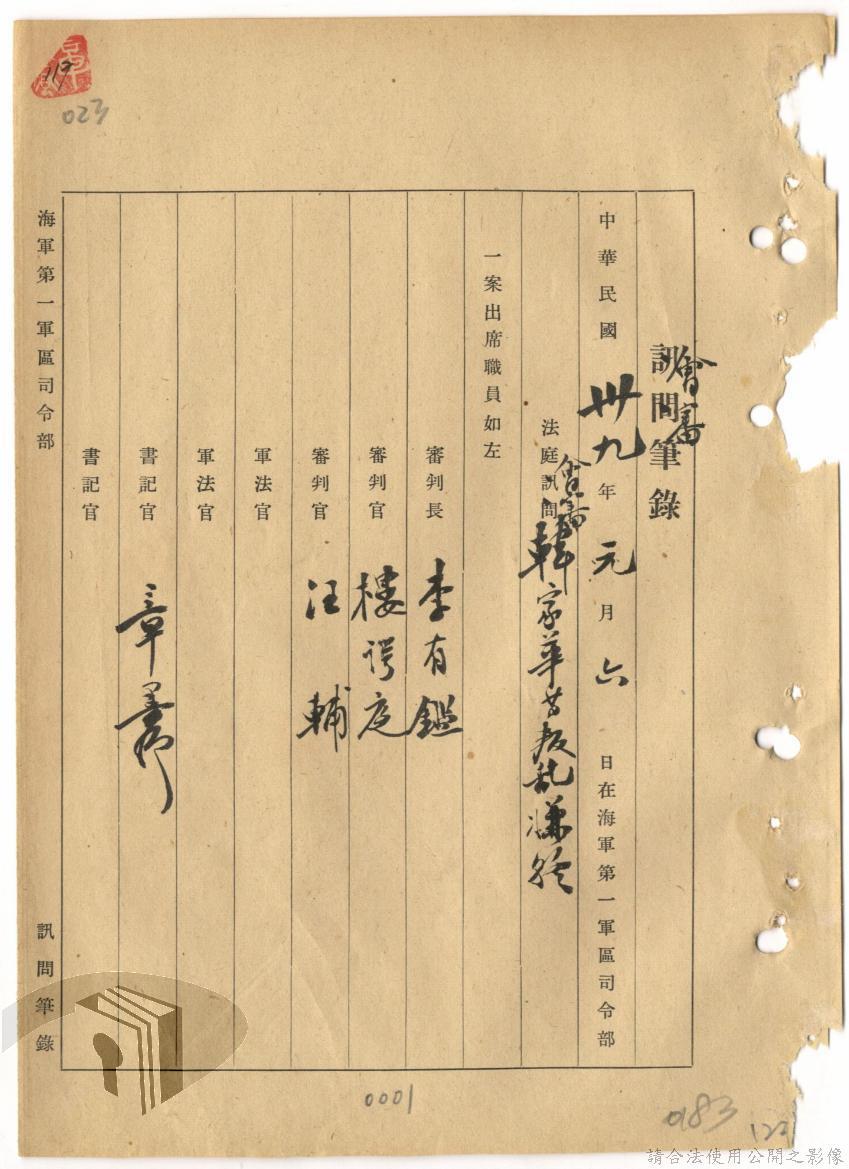 會審
訊問筆錄
中華民國卅九年元月六日在海軍第一軍區司令部
會審
法庭訊問韓家華等叛亂嫌疑
一案出席職員如左
審判長 李有鑑
審判官 樓諤庭
審判官 汪輔
軍法官
軍法官
書記官 章
書記官
海軍第一軍區司令部 訊問筆錄
119
023
0001
0183
122
請合法使用公開之影像